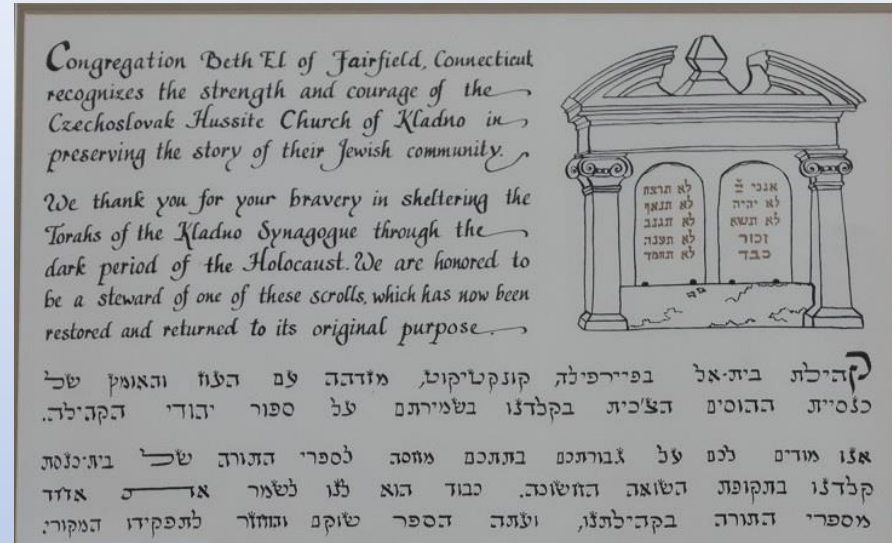 Congregation Beth El of Fairfield, Connecticut
recognizes the strength and courage of the
Czechoslovak Hussite Church of Kladno in
preserving the story of their Jewish community.
We thank you for your bravery in sheltering the
Torahs of the Kladno Synagogue through the
dark period of the Holocaust. We are honored to
be a steward of one of these scrolls, which has now been
restored and returned to its original purpose.
אנכי
לא יהיה
לא תשא
זכור
כבד
לא תרצח
לא תנאף
לא תגנב
לא תענה
לא תחמד
קהילת בית-אל בפיירפילד, קונקטיקוט, מזדהה עם העוז והאומץ של
כנסיית ההוסים הצ'כית בקלדנו בשמירתם על ספור יהודי הקהילה.
אנו מודים לכם על גבורתכם בתתכם מחסה לספרי התורה של בית-כנסת
קלדנו בתקופת השואה החשוכה. כבוד הוא לנו לשמר את אחד
מספרי התורה בקהילתנו, ועתה הספר שוקם והוחזר לתפקידו המקורי.